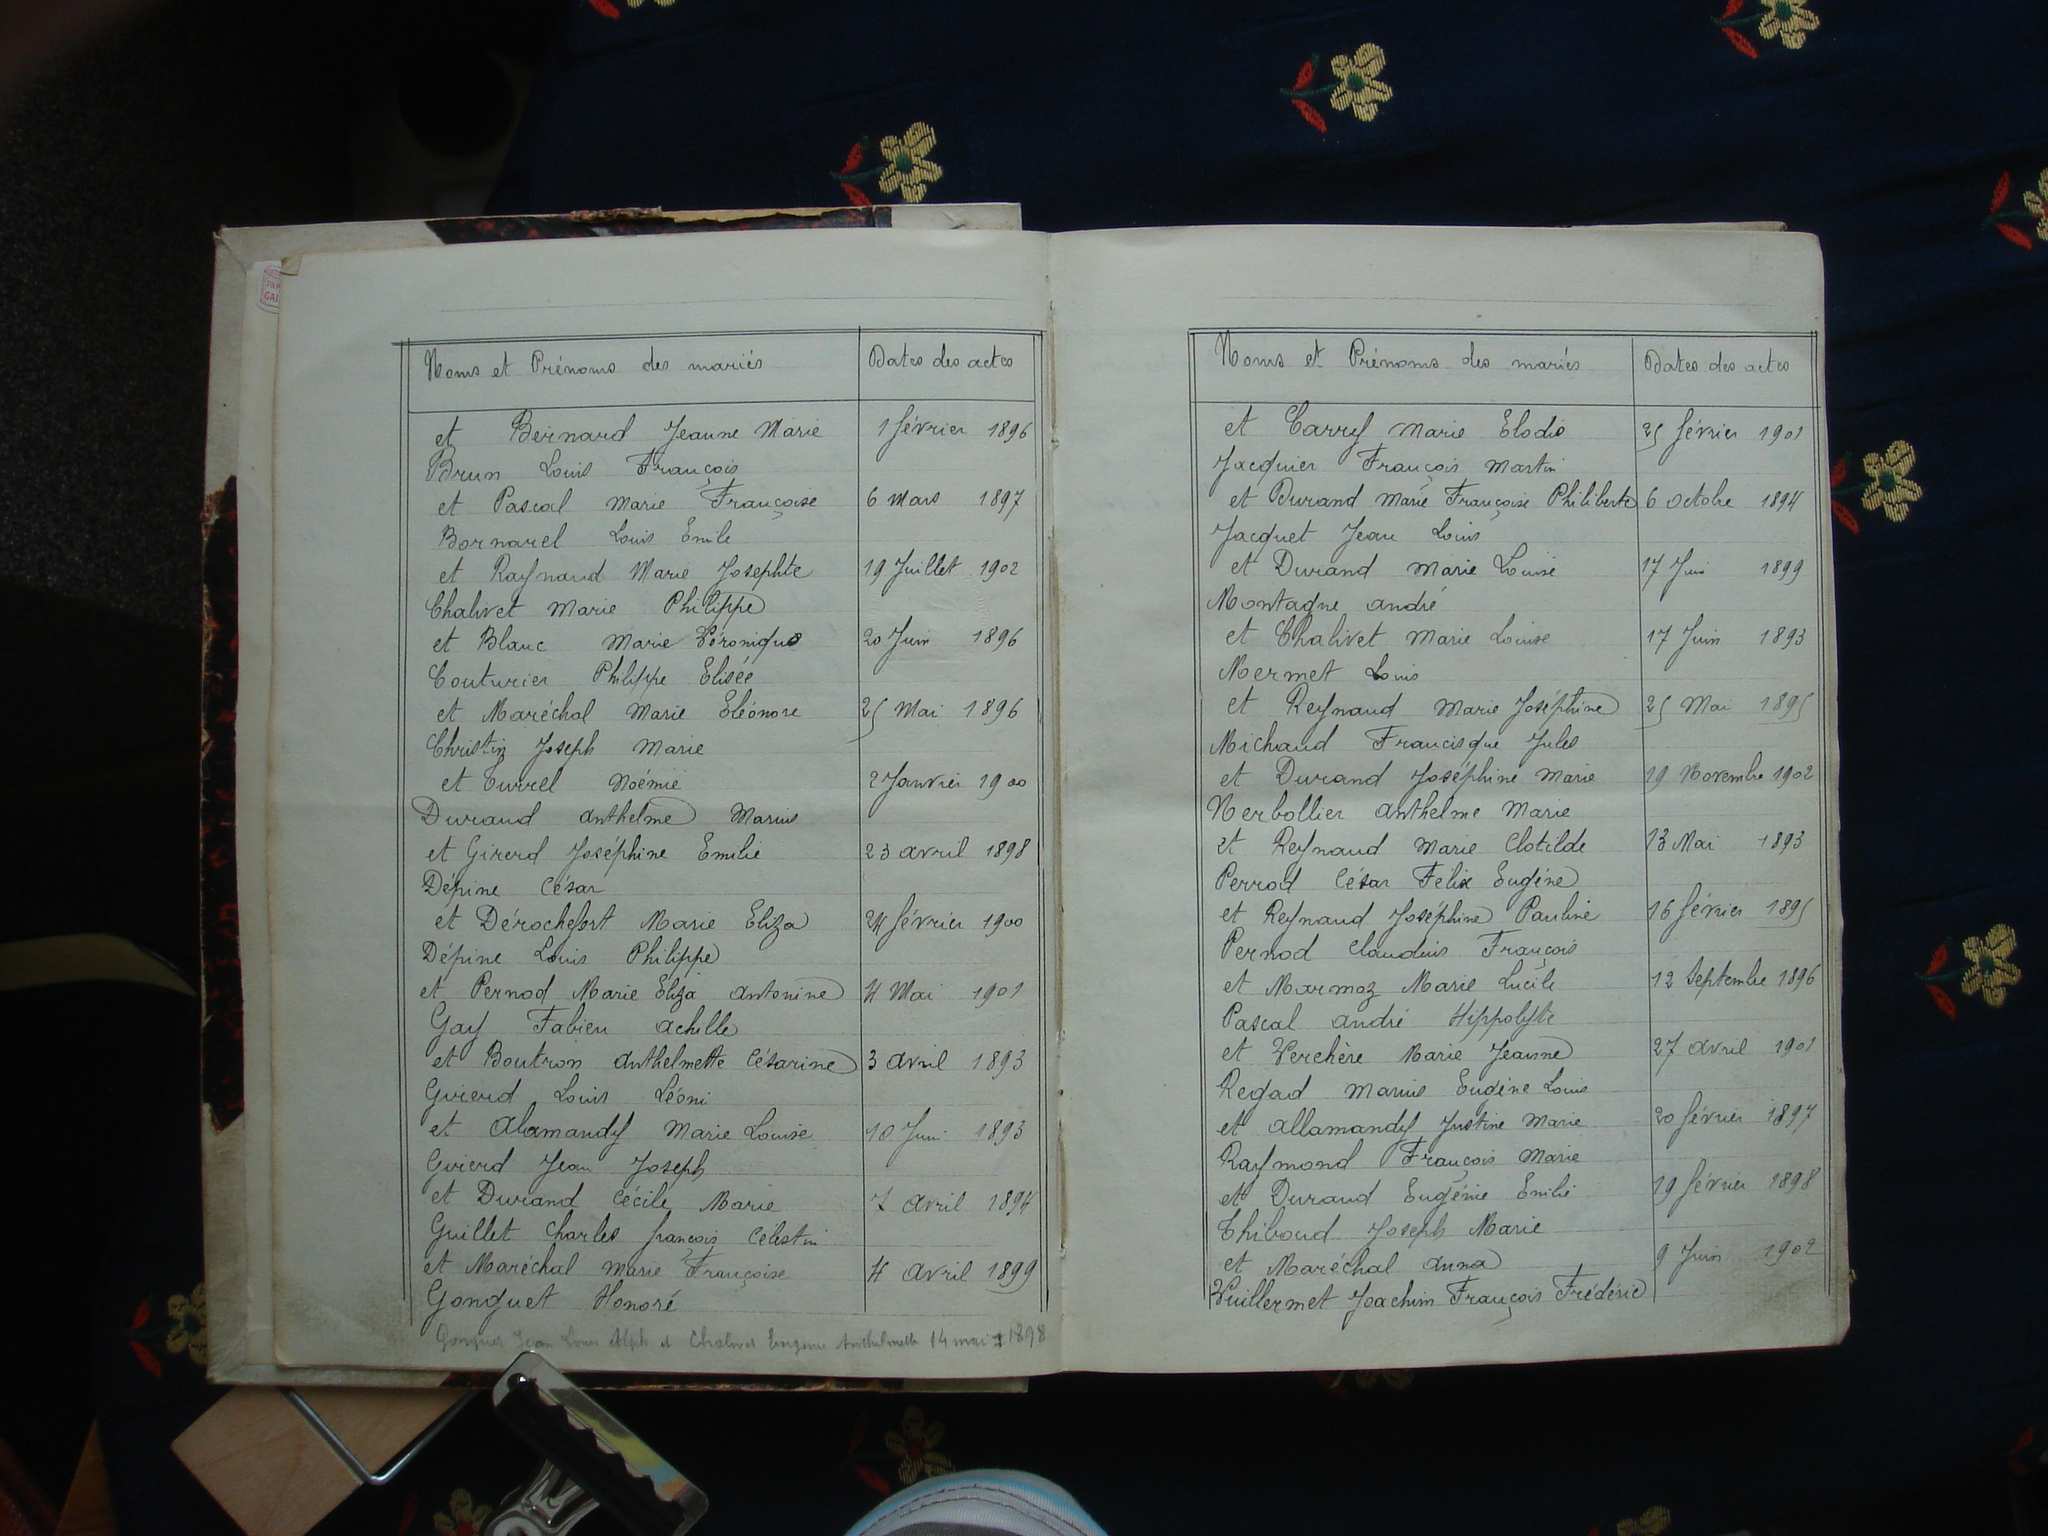 Noms et Prénoms des mariés Dates des actes
et Bernard Jeanne Marie 1 février 1896
Brun Louis François
et Pascal Marie Françoise 6 Mars 1897
Bornarel Louis Emile
et Raynaud Marie Josephte 19 Juillet 1902
Chalivet Marie Philippe
et Blanc Marie Véronique 20 Juin 1896
Couturier Philippe Elisée
et Maréchal Marie Eléonore 25 Mai 1896
Christin Joseph Marie
et Curvel Noémie 2 Janvier 1900
Durand Anthelme Marius
et Girerd Joséphine Emilie 23 avril 1898
Dépine César
et Dérochefort Marie Eliza 24 février 1900
Dépine Louis Philippe
et Pernod Marie Eliza antonine 4 Mai 1901
Gay Fabien achille
et Boutron Anthelmette Césarine 3 avril 1893
Girerd Louis Léoni
et Alamandy Marie Louise 10 Juin 1893
Girerd Jean Joseph
et Durand Cécile Marie 7 avril 1894
Guillet Charles françois Célestin
et Maréchal Marie Françoise 4 avril 1899
Gonguet Honoré
Jean Louis Alph et Chalivet Eugenie Anthelmette 14 mai 1898
Noms et Prénoms des mariés Dates des actes
et Carry Marie Elodie 25 février 1901
Jacquier François Martin
et Durand Marie Françoise Philiberte 6 octobre 1894
Jacquet Jean Louis
et Durand Marie Louise 17 Juin 1899
Montagne andré
et Chalivet Marie Louise 17 Juin 1893
Mermet Louis
et Reynaud Marie Joséphine 25 Mai 1895
Michaud Francisque Jules
et Durand Joséphine Marie 19 Novembre 1902
Nerbollier Anthelme Marie
et Reynaud Marie Clotilde 13 Mai 1893
Perrod César Félix Eugène
et Reynaud Joséphine Pauline 16 février 1895
Pernod Claudius François
et Marmoz Marie Lucile 12 Septembre 1896
Pascal André Hippolyte
et Verchère Marie Jeanne 27 avril 1901
Regad Marius Eugène Louis
et Allamandy Justine Marie 20 février 1897
Raymond François Marie
et Durand Eugénie Emilie 19 février 1898
Thiboud Joseph Marie
et Maréchal Anna 9 Juin 1902
Vuillermet Joachim François Frédéric